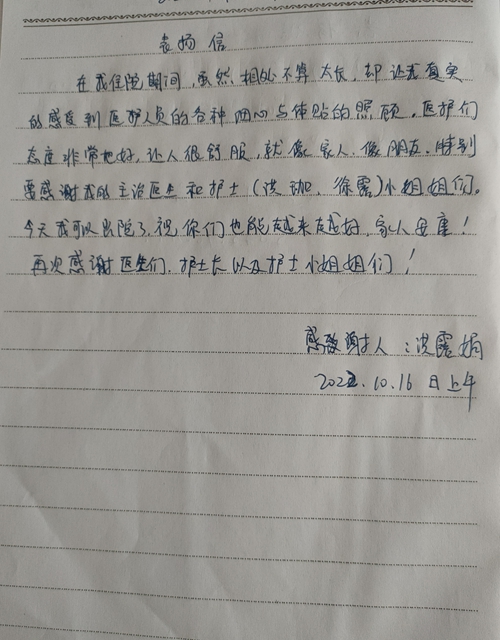 表扬信
在我住院期间,虽然相处不算太长,却还是真实
的感受到医护人员的各种细心与体贴的照顾,医护们
态度非常地好,让人很舒服,就像家人、像朋友,特别
要感谢我的主治医生和护士(洪珈、徐露)小姐姐们。
今天我可以出院了,祝你们也能越来越好,家人安康!
再次感谢医生们,护士长以及护士小姐姐们!
感谢人:洪露娟
2022.10.16日上午